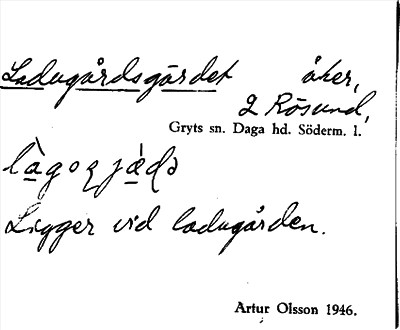 Ladugårdsgärdet åker,
2 Rösund,
Gryts sn. Daga hd. Söderm. l.
Ligger vid ladugården.
Artur Olsson 1946.